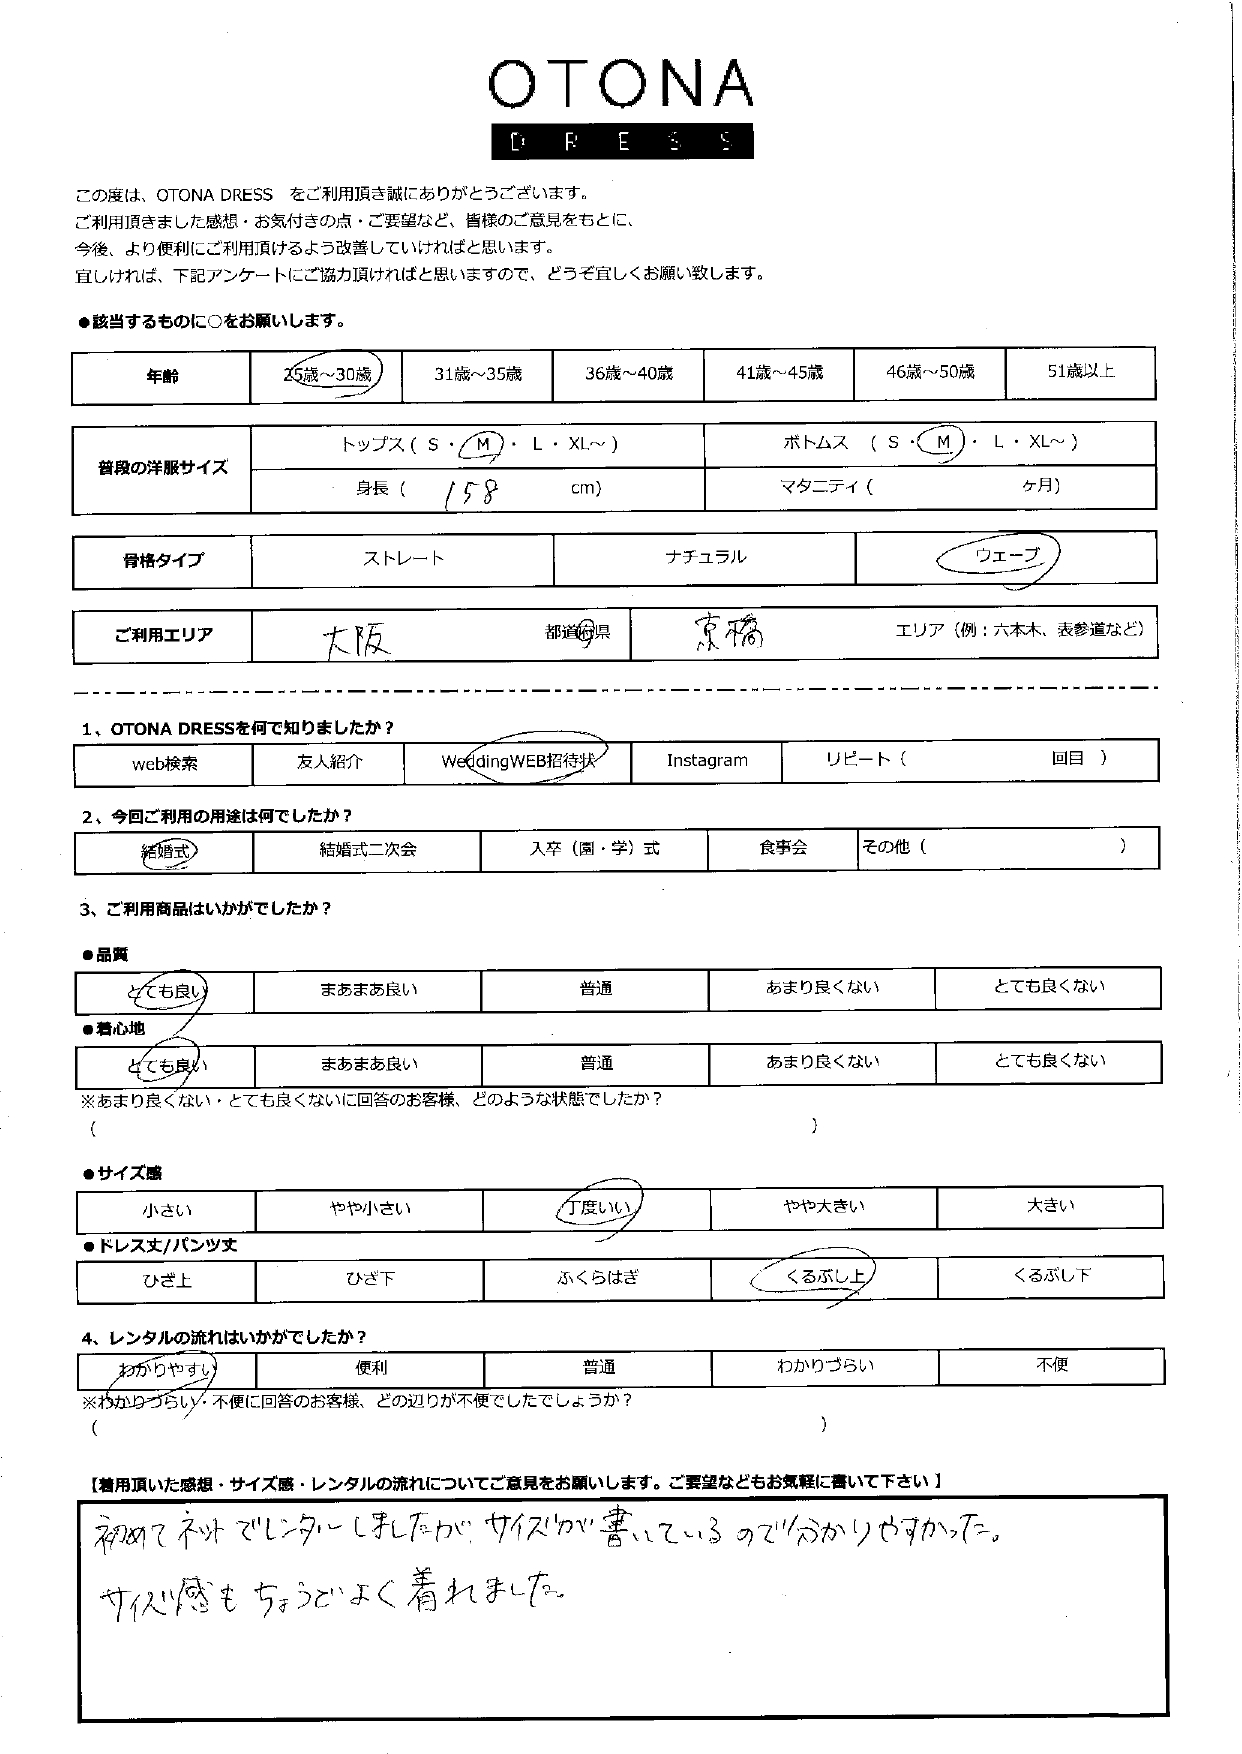 OTONA
DRESS
この度は、OTONA DRESS　をご利用頂き誠にありがとうございます。
ご利用頂きました感想・お気付きの点・ご要望など、皆様のご意見をもとに、
今後、より便利にご利用頂けるよう改善していければと思います。
宜しければ、下記アンケートにご協力頂ければと思いますので、どうぞ宜しくお願い致します。
●該当するものに○をお願いします。
年齢 25歳～30歳 31歳～35歳 36歳～40歳 41歳～45歳 46歳～50歳 51歳以上
普段の洋服サイズ
トップス ( S ・ M ・ L ・ XL～ ) ボトムス ( S ・ M ・ L ・ XL～ )
身長 ( 158 cm) マタニティ ( ケ月)
骨格タイプ ストレート ナチュラル ウェーブ
ご利用エリア 大阪 都道府県 京橋 エリア（例：六本木、表参道など）
1、OTONA DRESSを何で知りましたか？
web検索 友人紹介 WeddingWEB招待状 Instagram リピート（ 回目 ）
2、今回ご利用の用途は何でしたか？
結婚式 結婚式二次会 入卒（園・学）式 食事会 その他（ ）
3、ご利用商品はいかがでしたか？
●品質
とても良い まあまあ良い 普通 あまり良くない とても良くない
●着心地
とても良い まあまあ良い 普通 あまり良くない とても良くない
※あまり良くない・とても良くないに回答のお客様、どのような状態でしたか？
( )
●サイズ感
小さい やや小さい 丁度いい やや大きい 大きい
●ドレス丈/パンツ丈
ひざ上 ひざ下 ふくらはぎ くるぶし上 くるぶし下
4、レンタルの流れはいかがでしたか？
わかりやすい 便利 普通 わかりづらい 不便
※わかりづらい・不便に回答のお客様、どの辺りが不便でしたでしょうか？
( )
【着用頂いた感想・サイズ感・レンタルの流れについてご意見をお願いします。ご要望などもお気軽に書いて下さい】
初めてネットでレンタルしましたが、サイズが書いているので分かりやすかった。
サイズ感もちょうどよく着れました。